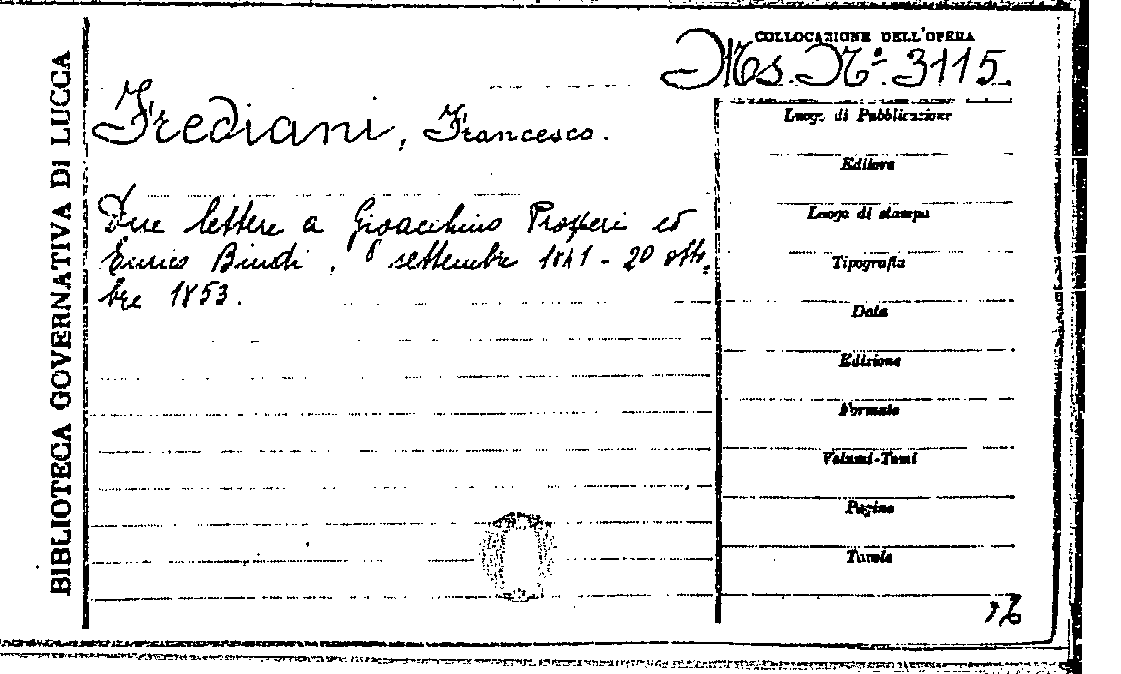 BIBLIOTECA GOVERNATIVA DI LUCCA
COLLOCAZIONE DELL'OPERA
Ms. Nº. 3115.
Frediani, Francesco.
Due lettere a Gioacchino Prosperi ed
Enrico Bindi, settembre 1841 - 20 otto-
bre 1853.
Luogo di Pubblicazione
Editore
Luogo di stampa
Tipografia
Data
Edizione
Formato
Volumi-Tomi
Pagine
Tavole